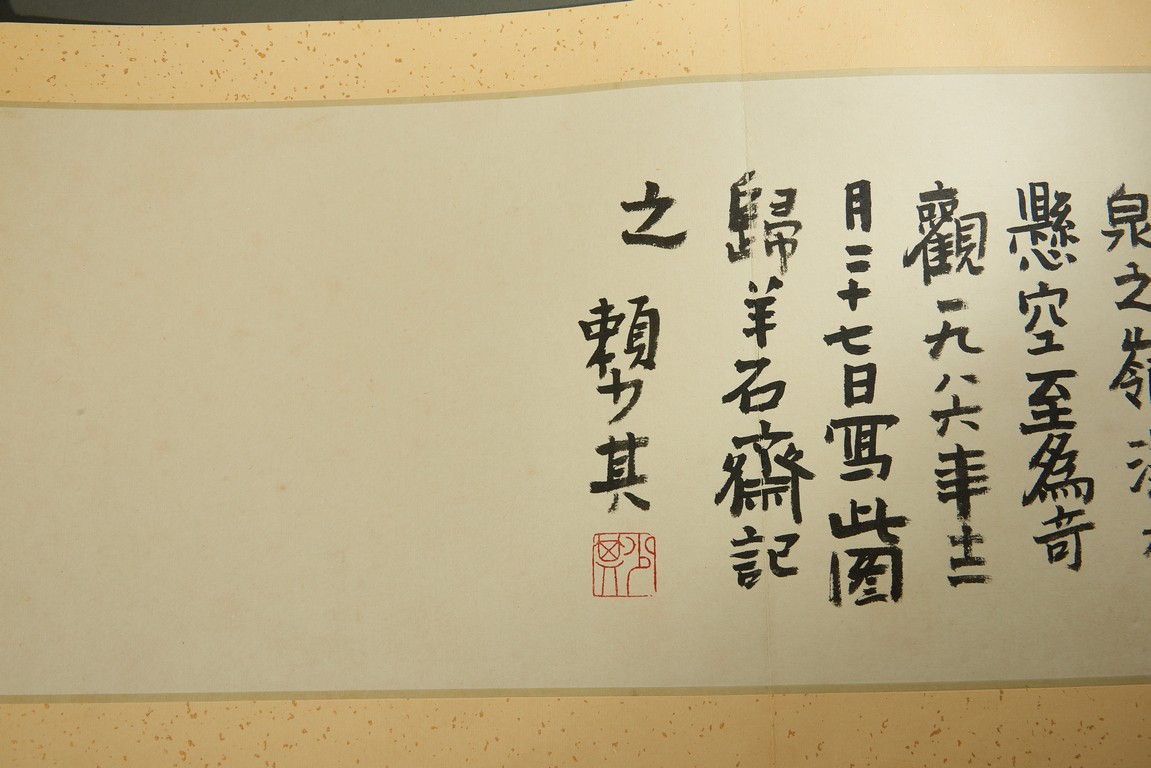 泉之嶺
懸空至為奇
觀一九八六年十二
月二十七日寫此图
歸羊石齋記
之 賴少其
少其